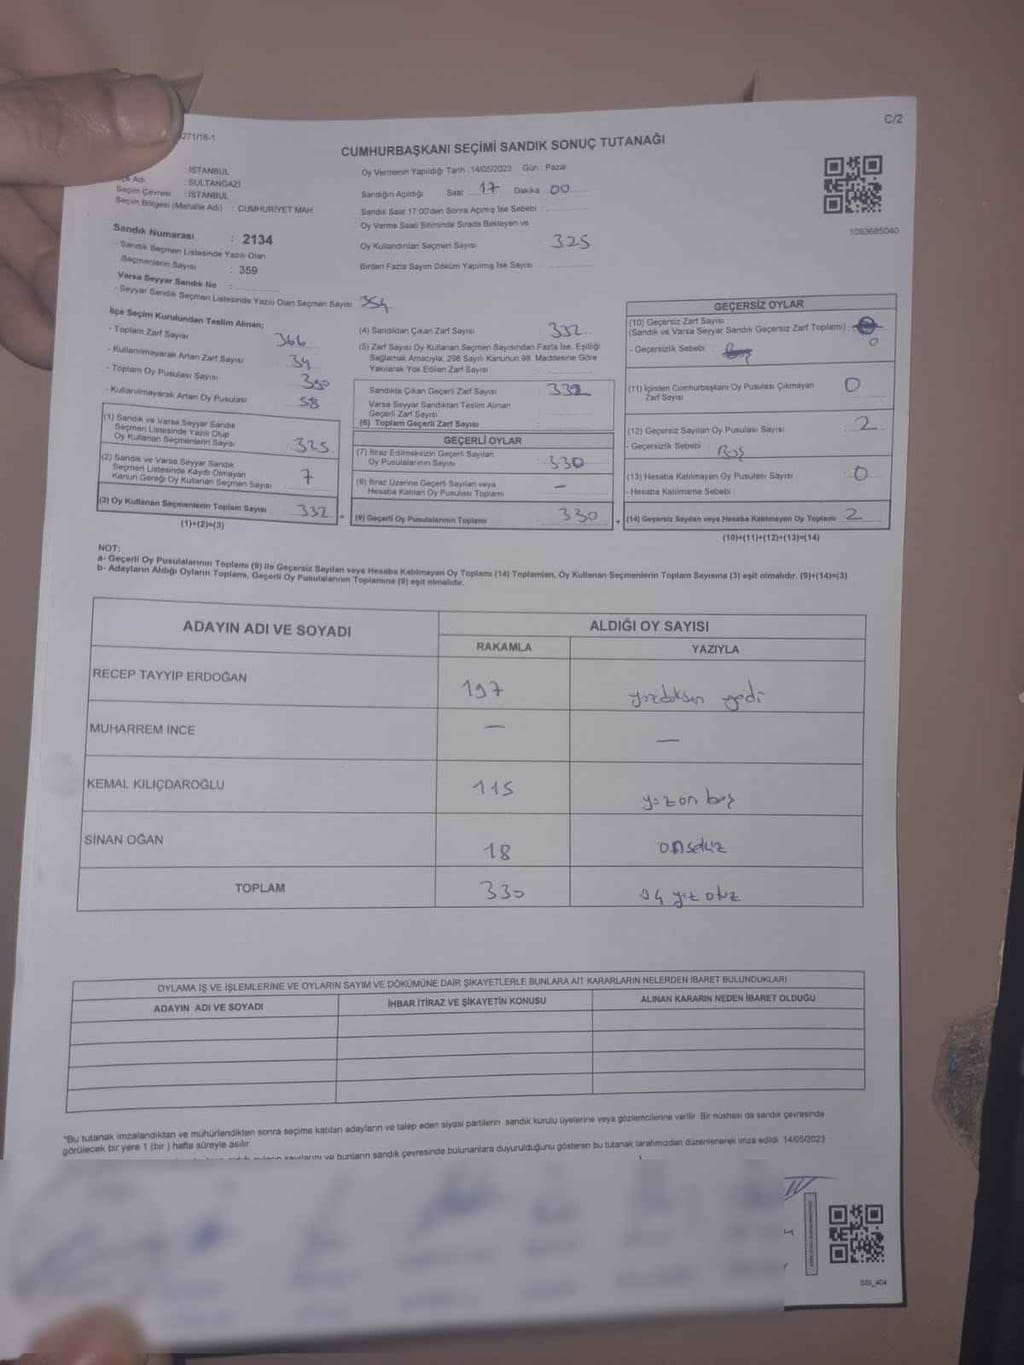 271/18-1
C/2
CUMHURBAŞKANI SEÇİMİ SANDIK SONUÇ TUTANAĞI
: İSTANBUL
Adı : SULTANGAZİ
Seçim Çevresi : İSTANBUL
Seçim Bölgesi (Mahalle Adı) : CUMHURİYET MAH.
Oy Vermenin Yapıldığı Tarih : 14/05/2023 Gün : Pazar
Sandığın Açıldığı Saat 17 Dakika 00
Sandık Saat 17:00'den Sonra Açılmış İse Sebebi :
Oy Verme Saati Bitiminde Sırada Bekleyen ve
Oy Kullandırılan Seçmen Sayısı 325
Birden Fazla Sayım Döküm Yapılmış İse Sayısı
1093685040
Sandık Numarası : 2134
- Sandık Seçmen Listesinde Yazılı Olan
Seçmenlerin Sayısı : 359
Varsa Seyyar Sandık No :
- Seyyar Sandık Seçmen Listesinde Yazılı Olan Seçmen Sayısı 354
İlçe Seçim Kurulundan Teslim Alınan;
- Toplam Zarf Sayısı 366
- Kullanılmayarak Artan Zarf Sayısı 34
- Toplam Oy Pusulası Sayısı 390
- Kullanılmayarak Artan Oy Pusulası 58
(1) Sandık ve Varsa Seyyar Sandık
Seçmen Listesinde Yazılı Olup
Oy Kullanan Seçmenlerin Sayısı 325
(2) Sandık ve Varsa Seyyar Sandık
Seçmen Listesinde Kayıtlı Olmayan
Kanun Gereği Oy Kullanan Seçmen Sayısı 7
(3) Oy Kullanan Seçmenlerin Toplam Sayısı 332
(1)+(2)=(3)
(4) Sandıktan Çıkan Zarf Sayısı 332
(5) Zarf Sayısı Oy Kullanan Seçmen Sayısından Fazla İse, Eşitliği
Sağlamak Amacıyla, 298 Sayılı Kanunun 98. Maddesine Göre
Yakılarak Yok Edilen Zarf Sayısı
Sandıkta Çıkan Geçerli Zarf Sayısı 332
Varsa Seyyar Sandıktan Teslim Alınan
Geçerli Zarf Sayısı
(6) Toplam Geçerli Zarf Sayısı
GEÇERLİ OYLAR
(7) İtiraz Edilmeksizin Geçerli Sayılan
Oy Pusulalarının Sayısı 330
(8) İtiraz Üzerine Geçerli Sayılan veya
Hesaba Katılan Oy Pusulası Toplamı —
(9) Geçerli Oy Pusulalarının Toplamı 330
=
+
GEÇERSİZ OYLAR
(10) Geçersiz Zarf Sayısı
(Sandık ve Varsa Seyyar Sandık Geçersiz Zarf Toplamı) : 0
- Geçersizlik Sebebi
(11) İçinden Cumhurbaşkanı Oy Pusulası Çıkmayan
Zarf Sayısı 0
(12) Geçersiz Sayılan Oy Pusulası Sayısı 2
- Geçersizlik Sebebi Boş
(13) Hesaba Katılmayan Oy Pusulası Sayısı 0
- Hesaba Katılmama Sebebi
(14) Geçersiz Sayılan veya Hesaba Katılmayan Oy Toplamı 2
(10)+(11)+(12)+(13)=(14)
NOT:
a- Geçerli Oy Pusulalarının Toplamı (9) ile Geçersiz Sayılan veya Hesaba Katılmayan Oy Toplamı (14) Toplamları, Oy Kullanan Seçmenlerin Toplam Sayısına (3) eşit olmalıdır. (9)+(14)=(3)
b- Adayların Aldığı Oyların Toplamı, Geçerli Oy Pusulalarının Toplamına (9) eşit olmalıdır.
ADAYIN ADI VE SOYADI
ALDIĞI OY SAYISI
RAKAMLA YAZIYLA
RECEP TAYYİP ERDOĞAN 197 yüzdoksan yedi
MUHARREM İNCE — —
KEMAL KILIÇDAROĞLU 115 yüzon beş
SİNAN OĞAN 18 onsekiz
TOPLAM 330 üç yüz otuz
OYLAMA İŞ VE İŞLEMLERİNE VE OYLARIN SAYIM VE DÖKÜMÜNE DAİR ŞİKAYETLERLE BUNLARA AİT KARARLARIN NELERDEN İBARET BULUNDUKLARI
ADAYIN ADI VE SOYADI İHBAR İTİRAZ VE ŞİKAYETİN KONUSU ALINAN KARARIN NEDEN İBARET OLDUĞU
*Bu tutanak imzalandıktan ve mühürlendikten sonra seçime katılan adayların ve talep eden siyasi partilerin sandık kurulu üyelerine veya gözlemcilerine verilir. Bir nüshası da sandık çevresinde
görülecek bir yere 1 (bir ) hafta süreyle asılır.
sayılarını ve bunların sandık çevresinde bulunanlara duyurulduğunu gösteren bu tutanak tarafımızdan düzenlenerek imza edildi. 14/05/2023